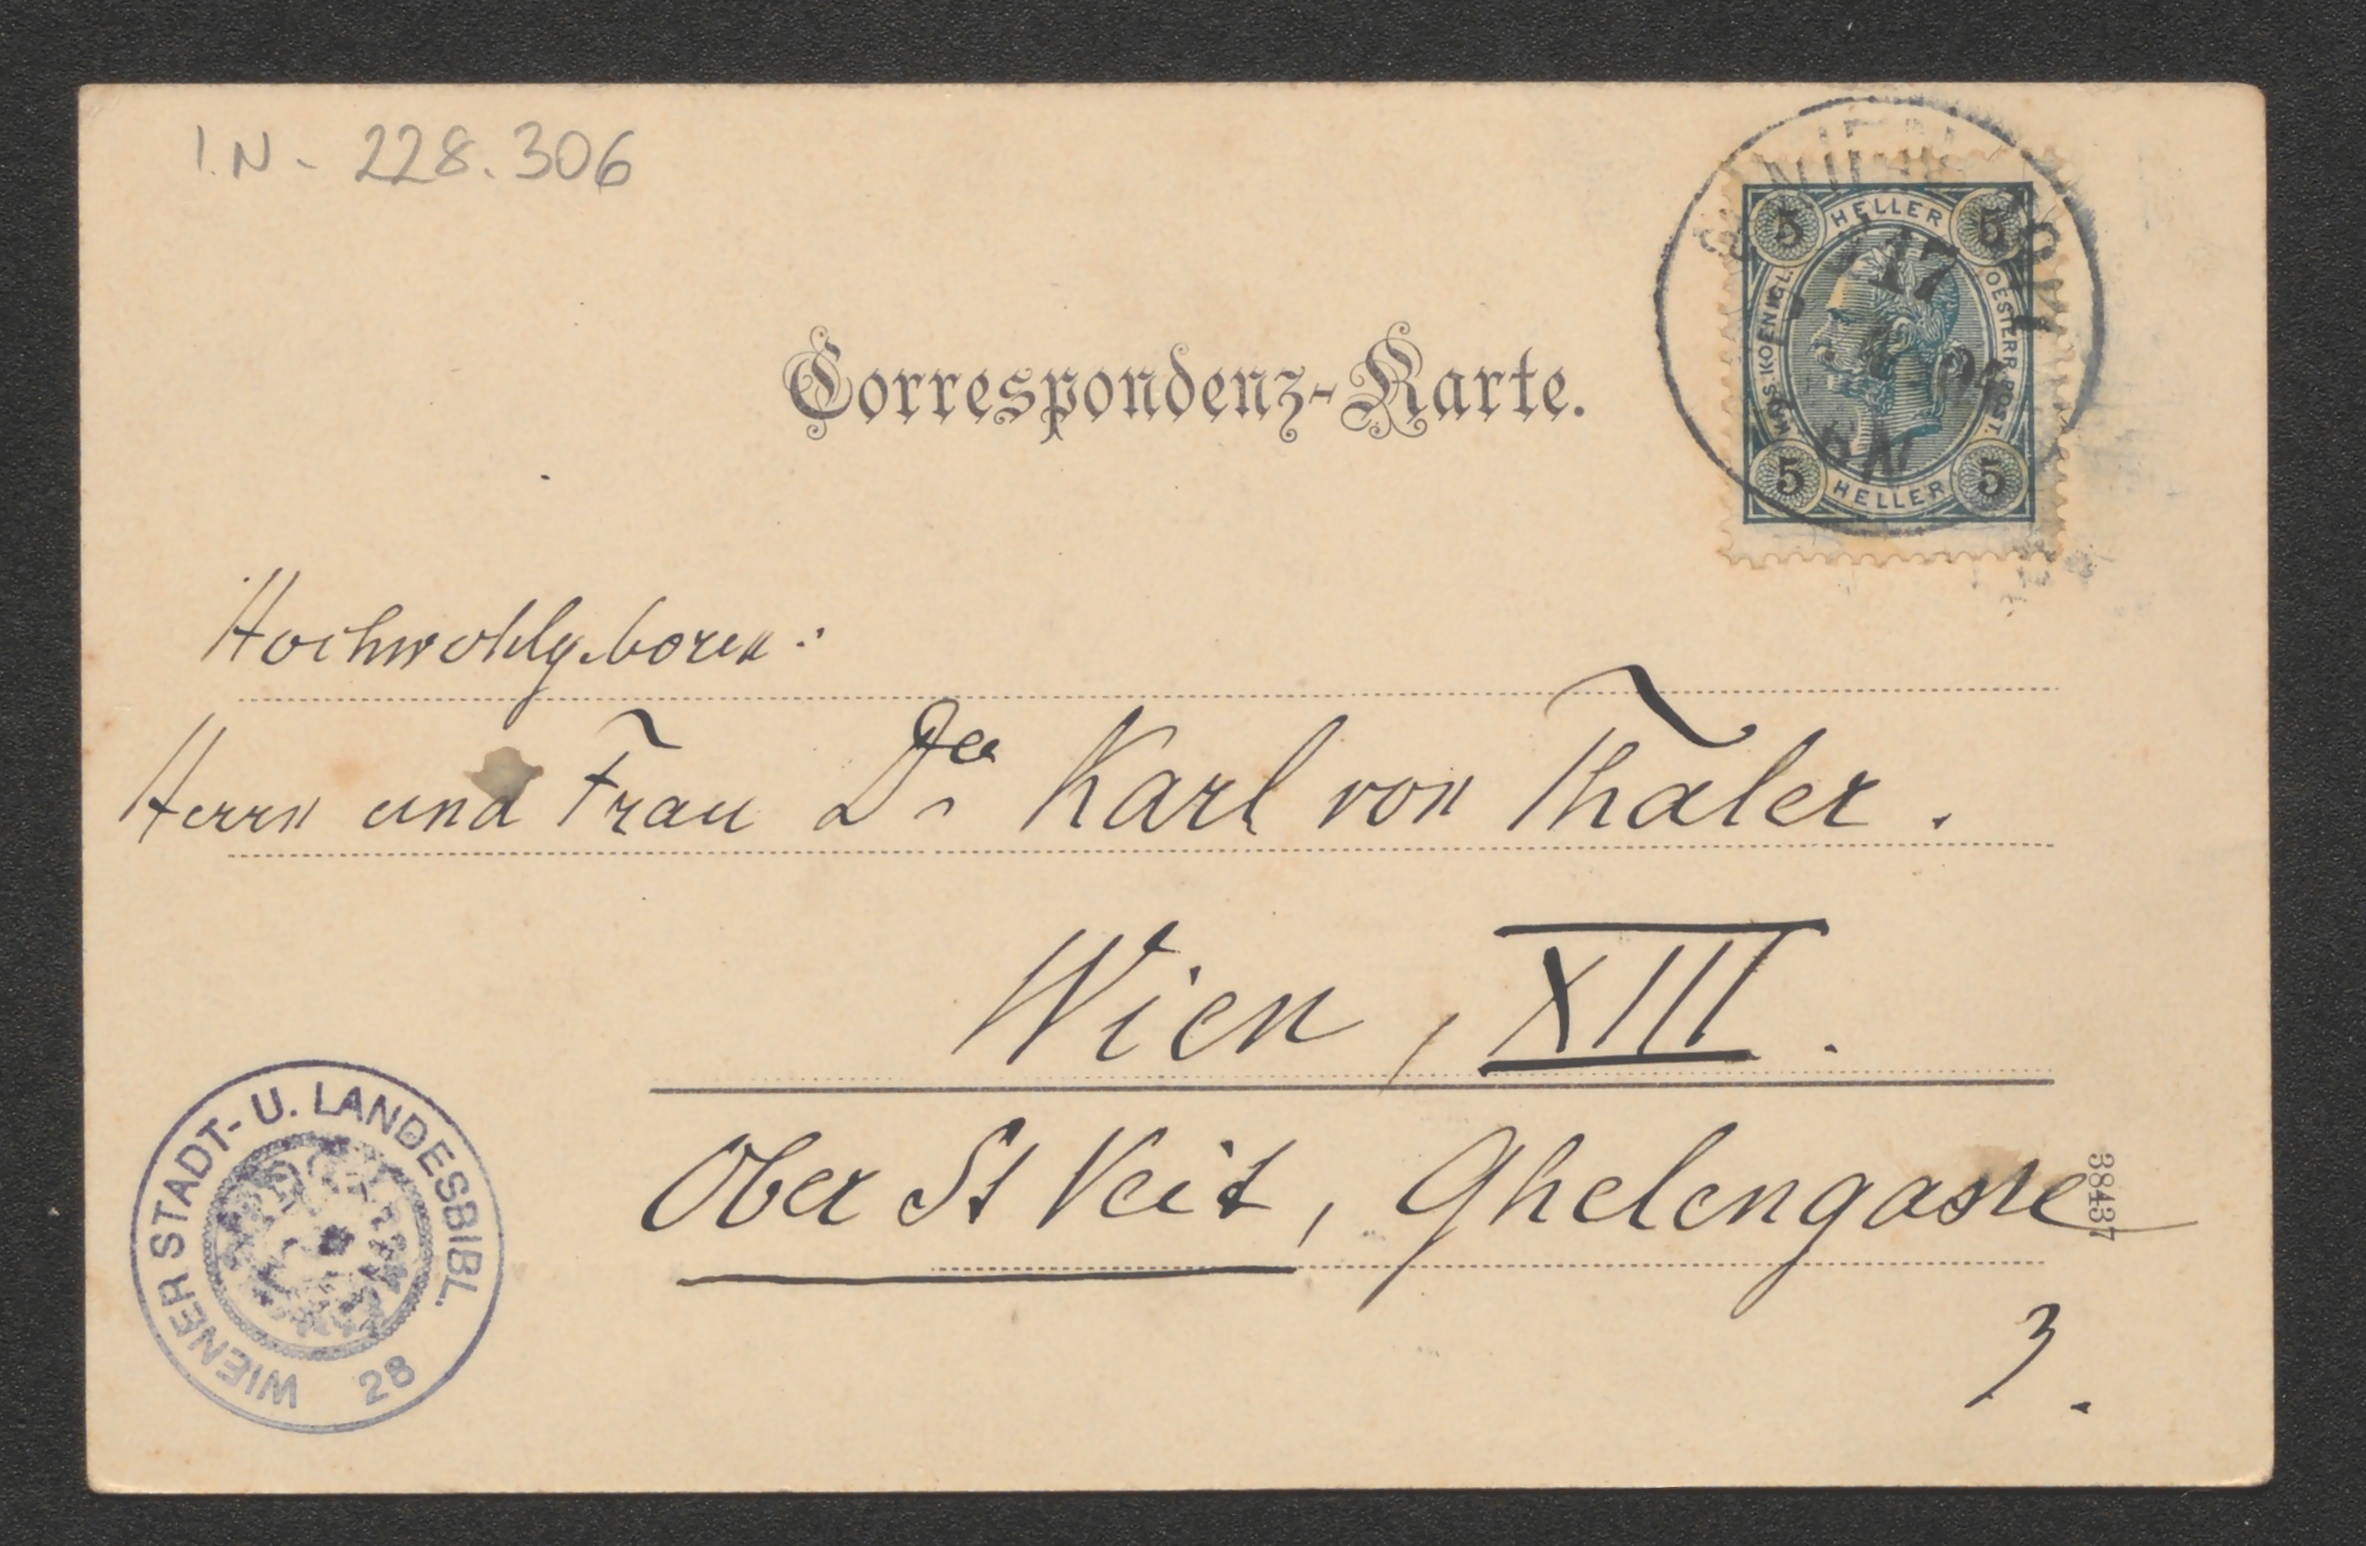 I.N - 228.306
HELLER
5 5
KAIS. KOENIGL. OESTERR. POST.
17
5 5
HELLER
Correspondenz-Karte.
Hochwohlgeboren:
Herrn und Frau Dr Karl von Thaler.
Wien, XIII.
Ober St Veit, Ghelengasse
3.
38437
WIENER STADT- U. LANDESBIBL.
28